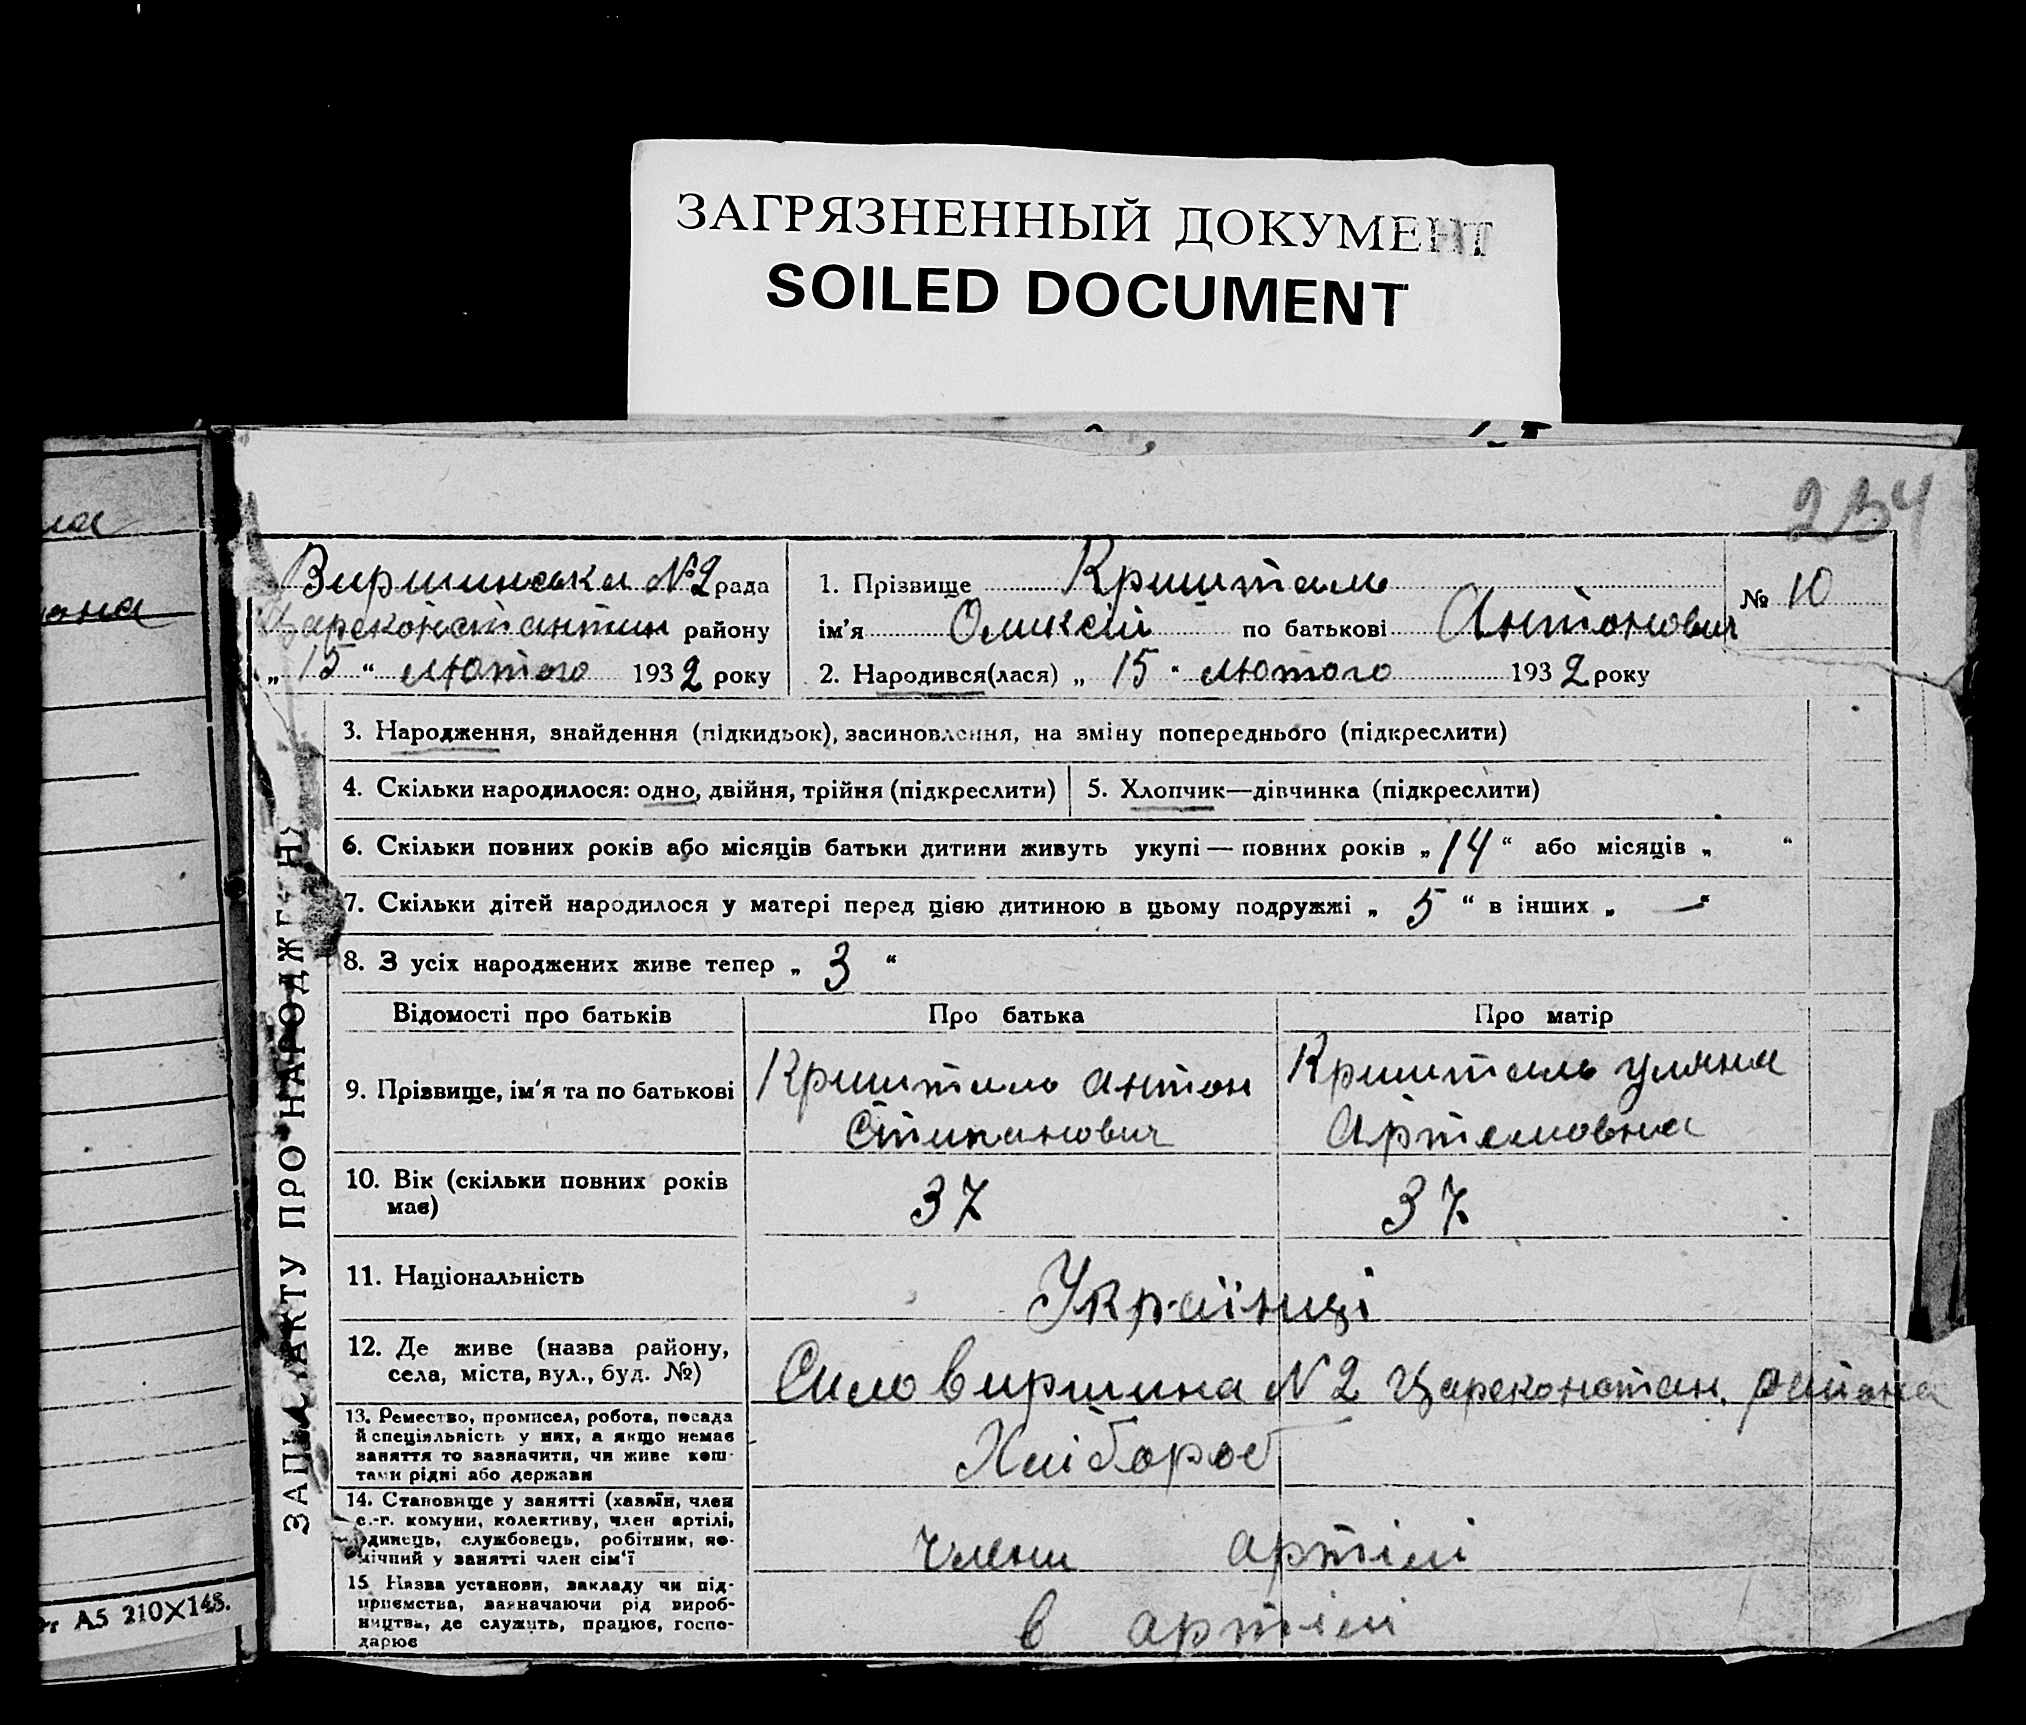 ЗАГРЯЗНЕННЫЙ ДОКУМЕНТ
SOILED DOCUMENT
234
Виршинська №2 рада
Цареконстантин району
„ 15 “ лютого 1932 року
1. Прізвище Кришталь
ім'я Оликсій по батькові Антонович
№ 10
2. Народився(лася) „ 15 “ лютого 1932 року
3. Народження, знайдення (підкидьок), засиновлення, на зміну попереднього (підкреслити)
4. Скільки народилося: одно, двійня, трійня (підкреслити)
5. Хлопчик—дівчинка (підкреслити)
6. Скільки повних років або місяців батьки дитини живуть укупі — повних років „ 14 “ або місяців „ “
7. Скільки дітей народилося у матері перед цією дитиною в цьому подружжі „ 5 “ в інших „ — “
8. З усіх народжених живе тепер „ 3 “
Відомості про батьків Про батька Про матір
9. Прізвище, ім'я та по батькові
Кришталь Антон
Стипанович
Кришталь Уляна
Артемовна
10. Вік (скільки повних років
має)
37 37
11. Національність
Українці
12. Де живе (назва району,
села, міста, вул., буд. №)
Село Виршина N 2 Цареконстан. района
13. Ремество, промисел, робота, посада
й спеціяльність у них, а якщо немає
заняття то зазначити, чи живе кош-
тами рідні або держави
Хлібороб
14. Становище у занятті (хазяїн, член
с.-г. комуни, колективу, член артілі,
одинець, службовець, робітник, по-
мічний у занятті член сім'ї
члени артілі
15 Назва установи, закладу чи під-
приємства, зазначаючи рід вироб-
ництва, де служить, працює, госпо-
дарює
в артілі
ЗАПИС АКТУ ПРО НАРОДЖЕНН
А5 210×148.